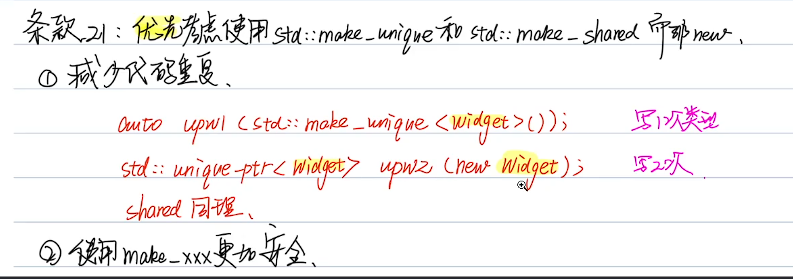 条款21：优先考虑使用std::make_unique和std::make_shared而非new.
① 减少代码重复、
auto upw1(std::make_unique<Widget>()); 写1次类型
std::unique-ptr<Widget> upw2(new Widget); 写2次.
shared 同理、
② 使用make_xxx更加安全、